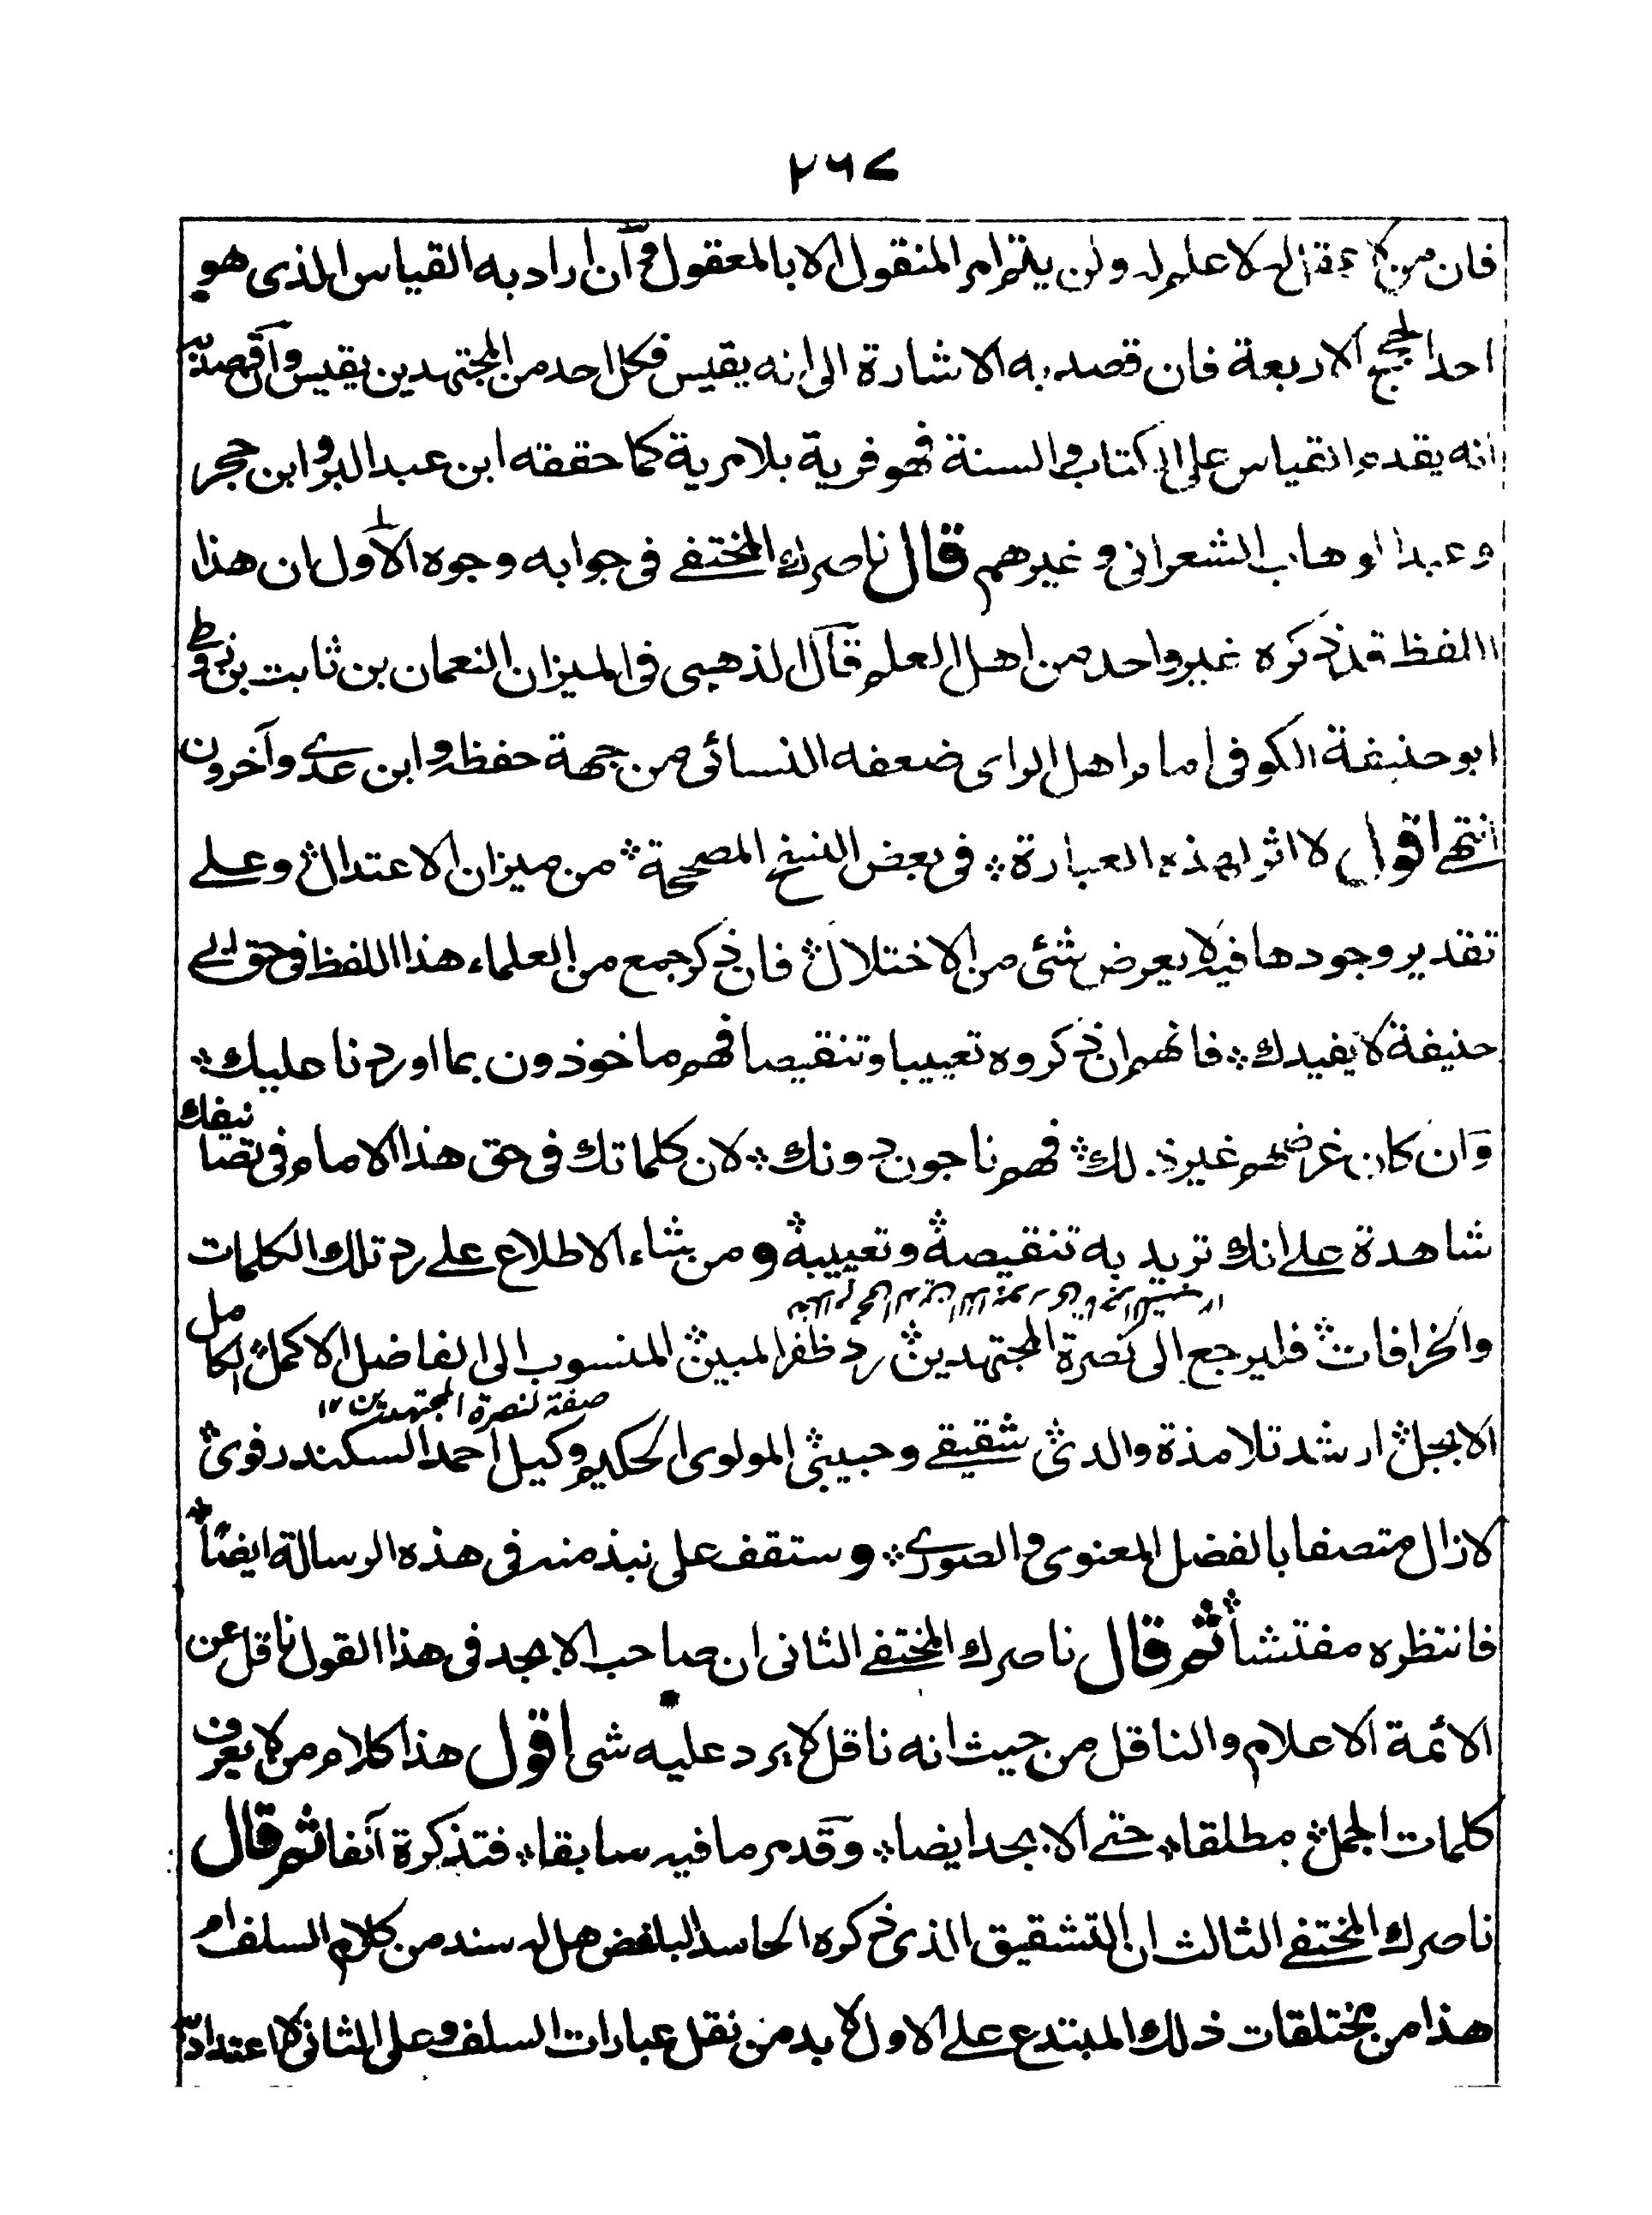 ٢٦٧
فان من لا عقل له لا علم له ولن يلتزام المنقول الا بالمعقول وآن اراد به القياس الذى هو
احد الحجج الاربعة فان قصد به الاشارة الى انه يقيس فكل احد من المجتهدين يقيس وآن قصد به
انه يقدم القياس على الكتاب والسنة فهو فرية بلا مرية كما حققه ابن عبد البر وابن حجر
وعبد الوهاب الشعرانى وغيرهم قال ناصرك المختفے فى جوابه وجوه الاول ان هذا
اللفظ قد ذكره غير واحد من اهل العلم قآل الذهبى فى الميزان النعمان بن ثابت بن زوطى
ابو حنيفة الكوفى امام اهل الراى ضعفه النسائى من جهة حفظه وابن عدے وآخرون
انتهے اقول لا اثر لهذه العبارة ❖ فى بعض النسخ المصححة ❖ من ميزان الاعتدال ❖ وعلے
تقدير وجودها فيه لا يعرض شئى من الاختلال ❖ فان ذكر جمع من العلماء هذا اللفظ فى حق ابى
حنيفة لا يفيدك ❖ فانهم ان ذكروه تعييبا وتنقيصا فهم ماخوذون بما اوردنا عليك ❖
وَان كان غرضهم غير ذلك ❖ فهم ناجون دونك ❖ لان كلماتك فى حق هذا الامام فى تصانيفك
شاهدة على انك تريد به تنقيصه ❖ وتعييبه ❖ ومن يشاء الاطلاع على رد تلك الكلمات
والخرافات ❖ فليرجع الى نصرة المجتهدين ❖ رد ظفر المبين ❖ المنسوب الى الفاضل الاكمل ❖ الكامل
صفة لنصرة المجتهدين ١٢
الابجل ❖ ارشد تلامذة والدى ❖ شقيقے وحبيبى ❖ المولوى الحكيم وكيل احمد السكندرفورى ❖
لا زال متصفا بالفضل المعنوى والصورے ❖ وستقف على نبذ منه فى هذه الرسالة ايضًا ❖
فانتظره مفتشا ❖ ثم قال ناصرك المختفے الثانى ان صاحب الابجد فى هذا القول ناقل عن
الائمة الاعلام والناقل من حيث انه ناقل لا يرد عليه شى اقول هذا كلام من لا يعرف
كلمات الجمل ❖ مطلقا ❖ حتے الابجد ايضا ❖ وقَد مر ما فيه سابقا ❖ فتذكره آنفا ثم قال
ناصرك المختفے الثالث ان التشقيق الذى ذكره الحاسد المباغض هل له سند من كلام السلف ام
هذا من مختلقات ذلك المبتدع على الاول لا بد من نقل عبارات السلف وعلى الثانى لا اعتداد به